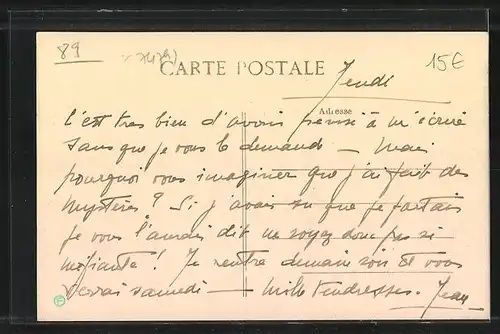 89
15€
CARTE POSTALE
Jeudi
Adresse
C'est très bien d'avoir pensé à m'écrire
sans que je vous le demande — Mais
pourquoi vous imaginer que j'ai fait des
mystères ? Si j'avais su que je partais
je vous l'aurais dit ne soyez donc pas si
méfiante ! Je rentre demain soir et vous
verrai samedi — Mille tendresses. Jean